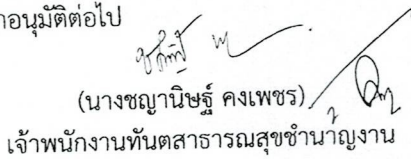 าอนุมัติต่อไป
(นางชญานิษฐ์ คงเพชร)
เจ้าพนักงานทันตสาธารณสุขชำนาญงาน